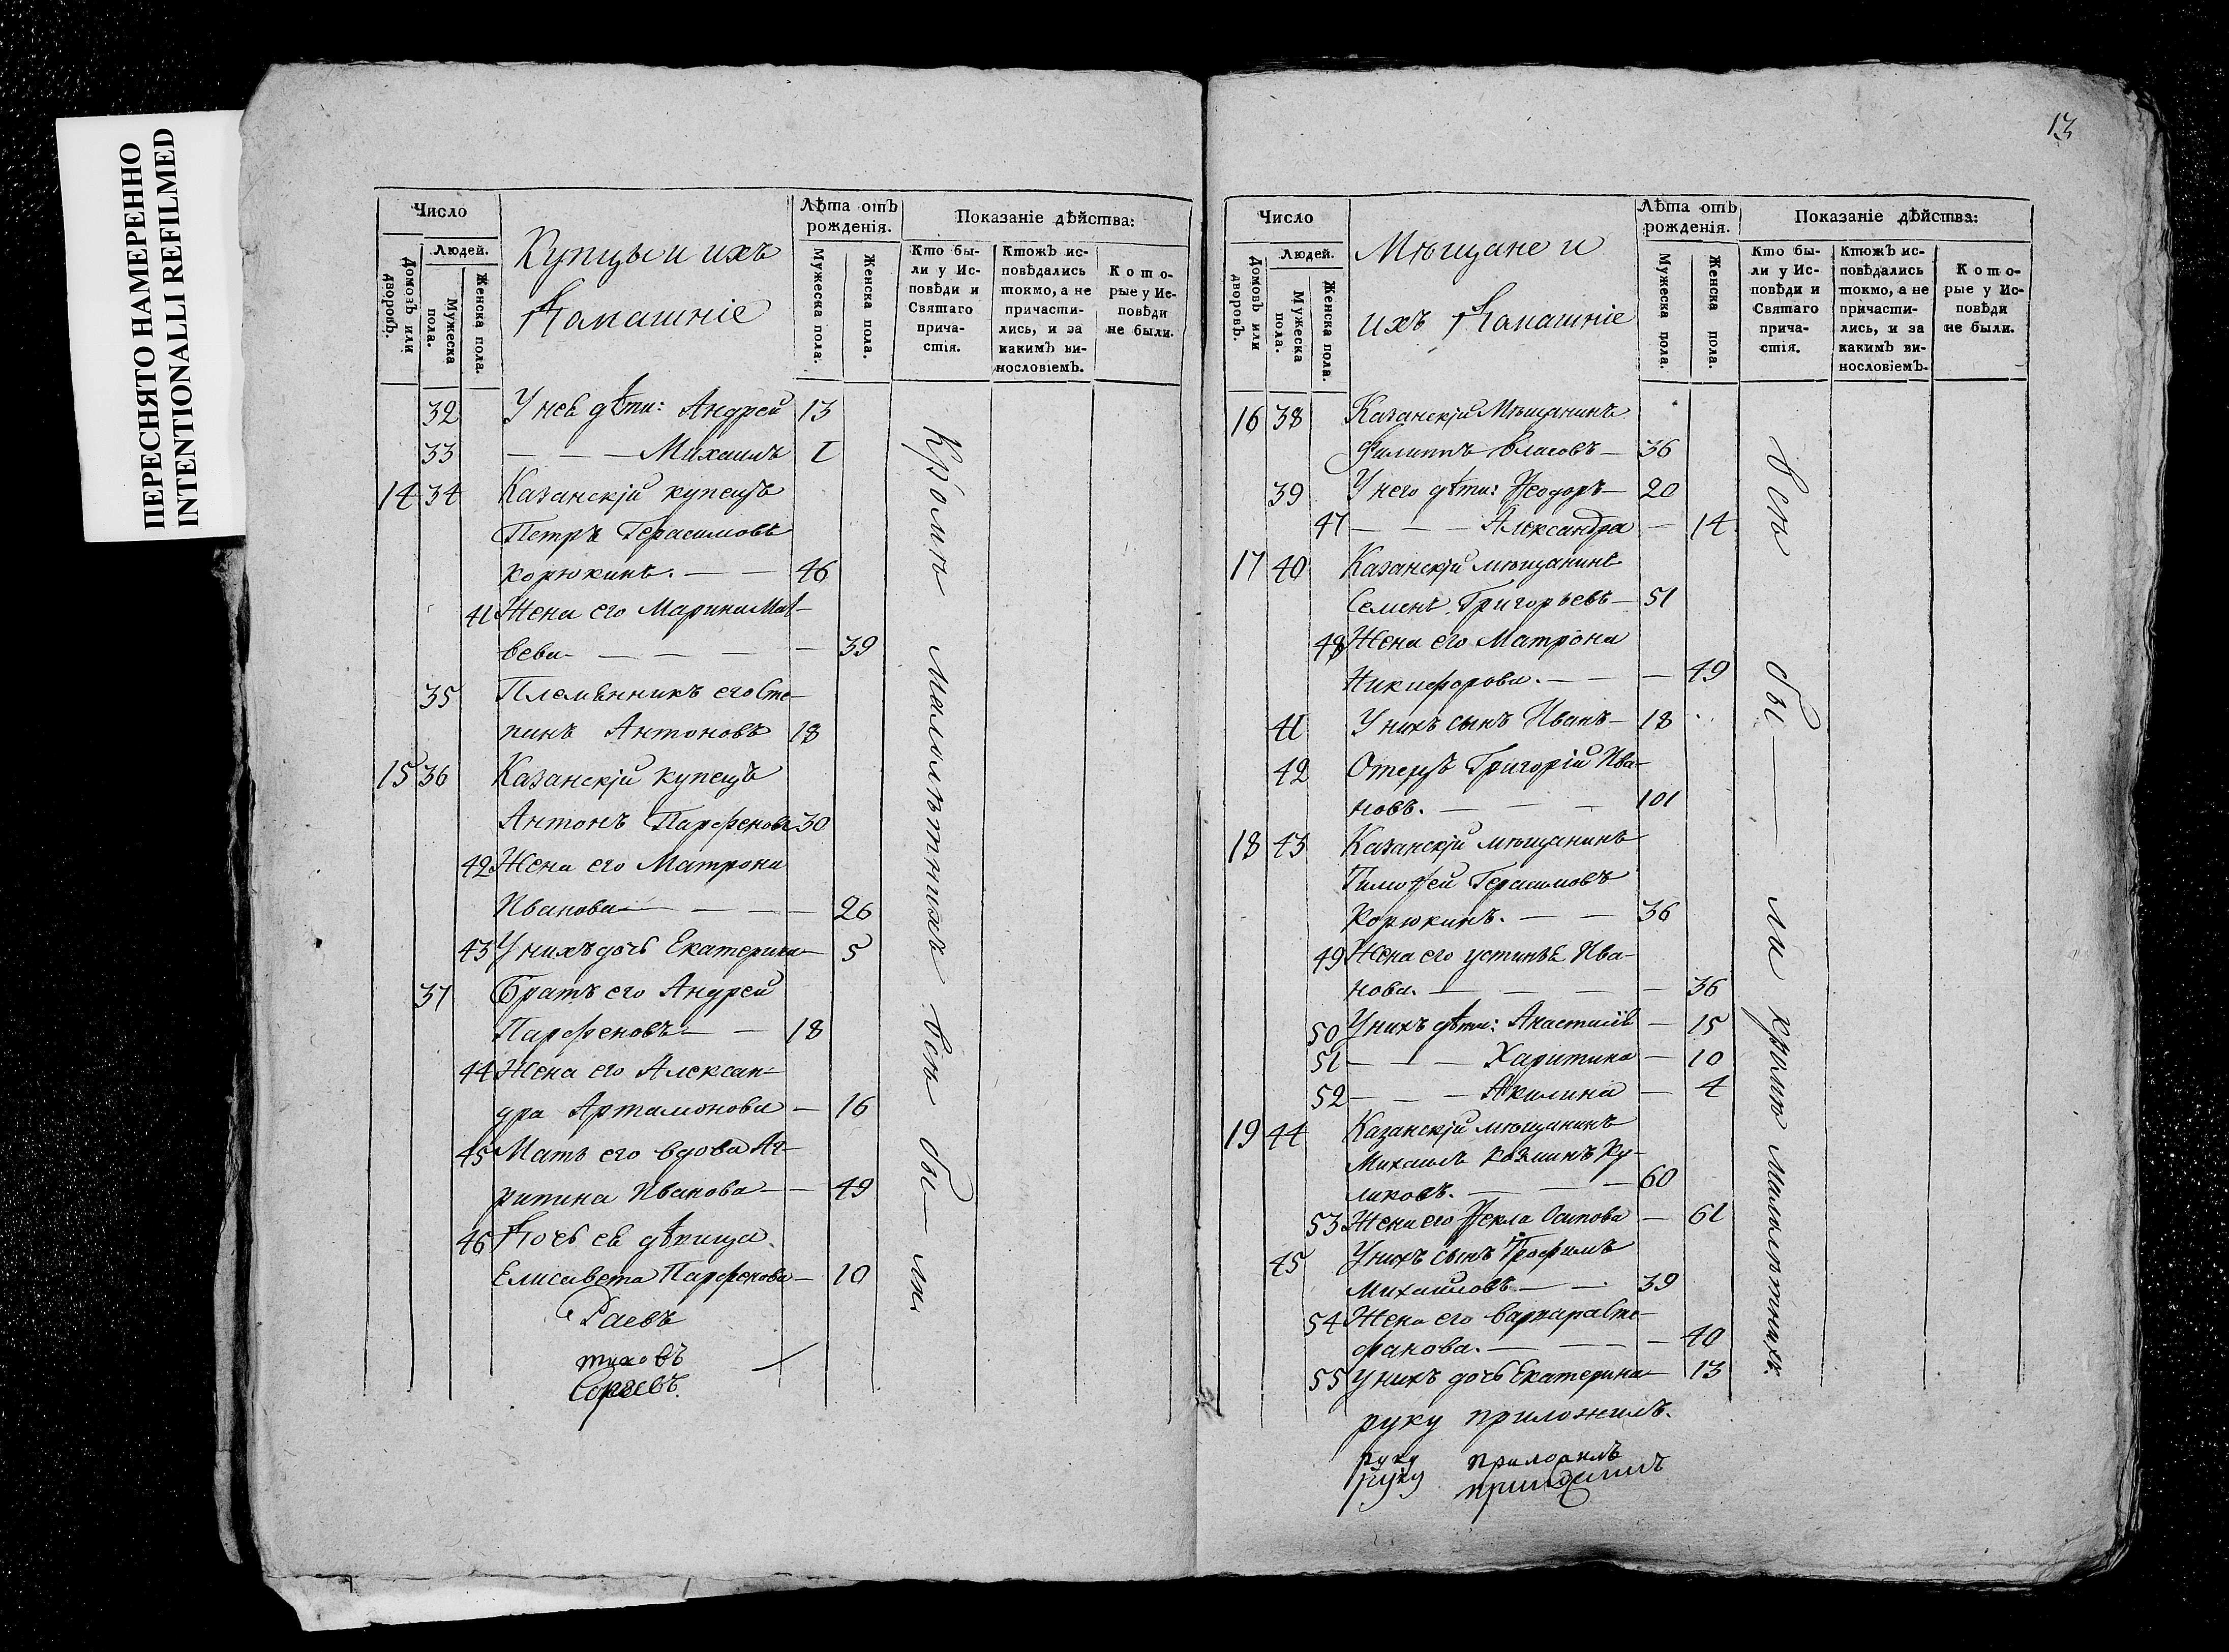 ПЕРЕСНЯТО НАМЕРЕННО
INTENTIONALLI REFILMED
Число
Людей.
Домовъ или дворовъ.
Мужеска пола.
Женска пола.
Купцы и ихъ
Домашніе
Лѣта отъ рожденія.
Мужеска пола.
Женска пола.
Показаніе дѣйства:
Кто были у Исповѣди и Святаго причастія.
Ктожъ исповѣдались токмо, а не причастились, и за какимъ винословіемъ.
Которые у Исповѣди не были.
32 У нея дѣти: Андрей 13
33 — — — Михаилъ 1
14 34 Казанскій купецъ
Петръ Герасимовъ
Корюкинъ. — — 46
41 Жена его Марина Мат-
вева — — — — 39
35 Племянникъ его Сте-
панъ Антоновъ 18
15 36 Казанскій купецъ
Антонъ Парфеновъ 30
42 Жена его Матрона
Иванова — — — 26
43 У нихъ дочь Екатерина — 5
37 Братъ его Андрей
Парфеновъ — — 18
44 Жена его Алексан-
дра Артамонова — 16
45 Мать его вдова Аг-
рипина Иванова — — 49
46 Дочь ея дѣвица
Елисавета Парфенова — 10
Кромѣ малолѣтнихъ всѣ бы — ли.
Раевъ
тиховъ
Сергеевъ.
13
Число
Людей.
Домовъ или дворовъ.
Мужеска пола.
Женска пола.
Мѣщане и
ихъ Домашніе
Лѣта отъ рожденія.
Мужеска пола.
Женска пола.
Показаніе дѣйства:
Кто были у Исповѣди и Святаго причастія.
Ктожъ исповѣдались токмо, а не причастились, и за какимъ винословіемъ.
Которые у Исповѣди не были.
16 38 Казанскій Мѣщанинъ
Филиппъ Власовъ — 36
39 У него дѣти: Ѳеодоръ — 20
47 — — — Александра — 14
17 40 Казанскій мѣщанинъ
Семенъ Григорьевъ — 51
48 Жена его Матрона
Никифорова. — — — 49
41 У нихъ сынъ Иванъ — 18
42 Отецъ Григорій Ива-
новъ. — — — 101
18 43 Казанскій мѣщанинъ
Тимоѳей Герасимовъ
Корюкинъ. — — 36
49 Жена его устинья Ива-
нова. — — — — 36
50 У нихъ дѣти: Анастасія — 15
51 — — — Харитина — 10
52 — — — Акилина — 4
19 44 Казанскій мѣщанинъ
Михаилъ Козминъ Ку-
ликовъ. — — — 60
53 Жена его Ѳекла Осипова — 61
45 У нихъ сынъ Трофимъ
Михаиловъ — — 39
54 Жена его варвара Сте-
фанова. — — — — 40
55 у нихъ дочь Екатерина — 13
Всѣ бы — ли кромѣ малолѣтнихъ.
руку приложилъ.
руку приложилъ
руку приложилъ